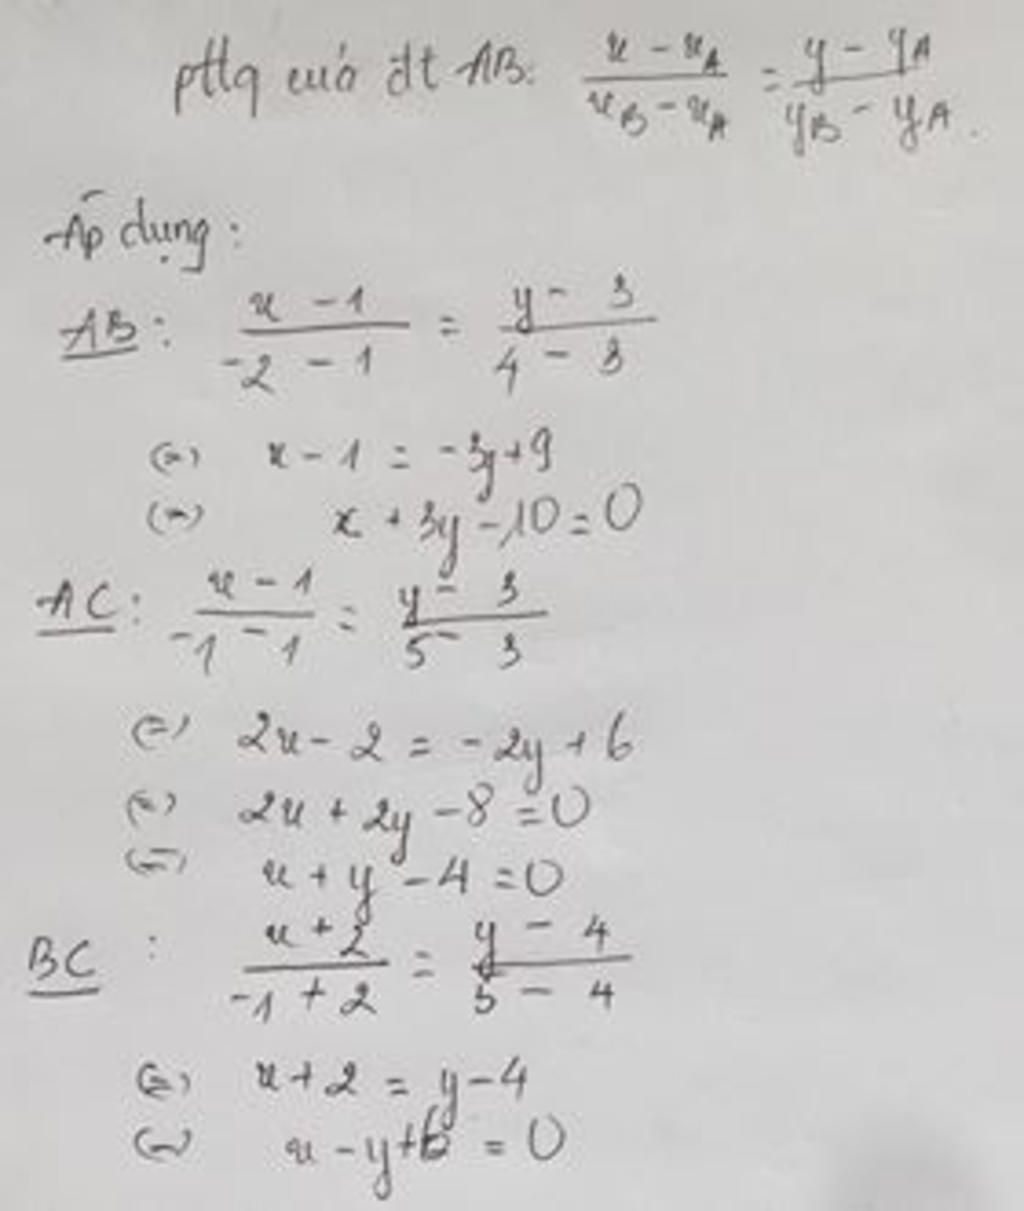 pttq của đt AB: (x - x_A)/(x_B - x_A) = (y - y_A)/(y_B - y_A).
Áp dụng:
AB: (x - 1)/(-2 - 1) = (y - 3)/(4 - 3)
(=) x - 1 = -3y + 9
(=) x + 3y - 10 = 0
AC: (x - 1)/(-1 - 1) = (y - 3)/(5 - 3)
(=) 2x - 2 = -2y + 6
(=) 2x + 2y - 8 = 0
(=) x + y - 4 = 0
BC: (x + 2)/(-1 + 2) = (y - 4)/(5 - 4)
(=) x + 2 = y - 4
(=) x - y + 6 = 0